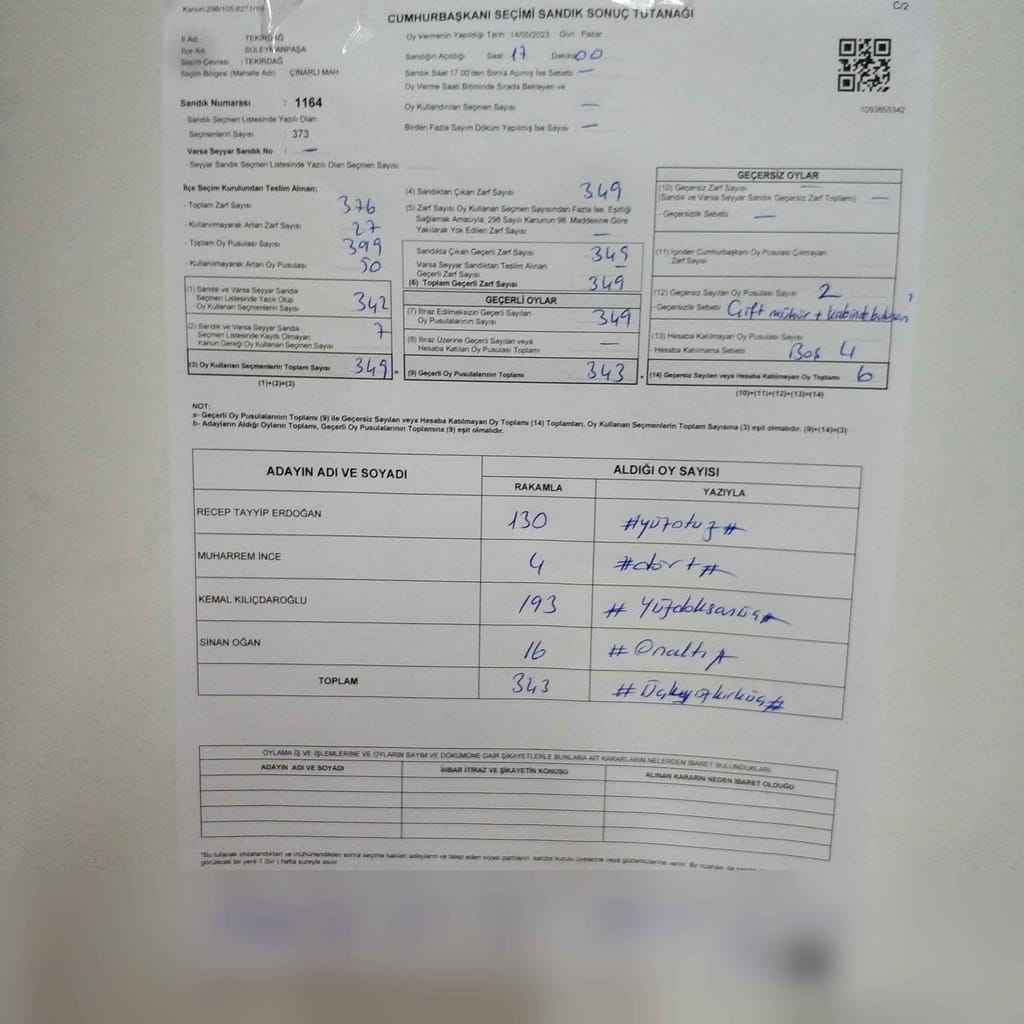 Kanun:298/105,6271/19
C/2
CUMHURBAŞKANI SEÇİMİ SANDIK SONUÇ TUTANAĞI
İl Adı : TEKİRDAĞ
İlçe Adı : SÜLEYMANPAŞA
Seçim Çevresi : TEKİRDAĞ
Seçim Bölgesi (Mahalle Adı) ÇINARLI MAH
Sandık Numarası : 1164
- Sandık Seçmen Listesinde Yazılı Olan
Seçmenlerin Sayısı : 373
Varsa Seyyar Sandık No : —
- Seyyar Sandık Seçmen Listesinde Yazılı Olan Seçmen Sayısı:
Oy Vermenin Yapıldığı Tarih :14/05/2023 Gün Pazar
Sandığın Açıldığı Saat 17 Dakika 00
Sandık Saat 17:00'den Sonra Açılmış İse Sebebi —
Oy Verme Saati Bitiminde Sırada Bekleyen ve
Oy Kullandırılan Seçmen Sayısı —
Birden Fazla Sayım Döküm Yapılmış İse Sayısı —
1093855342
İlçe Seçim Kurulundan Teslim Alınan;
- Toplam Zarf Sayısı 376
- Kullanılmayarak Artan Zarf Sayısı 27
- Toplam Oy Pusulası Sayısı 399
- Kullanılmayarak Artan Oy Pusulası 50
(1) Sandık ve Varsa Seyyar Sandık
Seçmen Listesinde Yazılı Olup
Oy Kullanan Seçmenlerin Sayısı 342
(2) Sandık ve Varsa Seyyar Sandık
Seçmen Listesinde Kayıtlı Olmayan
Kanun Gereği Oy Kullanan Seçmen Sayısı 7
(3) Oy Kullanan Seçmenlerin Toplam Sayısı 349 =
(1)+(2)=(3)
(4) Sandıktan Çıkan Zarf Sayısı 349
(5) Zarf Sayısı Oy Kullanan Seçmen Sayısından Fazla İse, Eşitliği
Sağlamak Amacıyla, 298 Sayılı Kanunun 98. Maddesine Göre
Yakılarak Yok Edilen Zarf Sayısı —
Sandıkta Çıkan Geçerli Zarf Sayısı 349
Varsa Seyyar Sandıktan Teslim Alınan
Geçerli Zarf Sayısı —
(6) Toplam Geçerli Zarf Sayısı 349
GEÇERLİ OYLAR
(7) İtiraz Edilmeksizin Geçerli Sayılan
Oy Pusulalarının Sayısı 349
(8) İtiraz Üzerine Geçerli Sayılan veya
Hesaba Katılan Oy Pusulası Toplamı —
(9) Geçerli Oy Pusulalarının Toplamı 343
GEÇERSİZ OYLAR
(10) Geçersiz Zarf Sayısı —
(Sandık ve Varsa Seyyar Sandık Geçersiz Zarf Toplamı) —
- Geçersizlik Sebebi —
(11) İçinden Cumhurbaşkanı Oy Pusulası Çıkmayan
Zarf Sayısı
(12) Geçersiz Sayılan Oy Pusulası Sayısı 2
Geçersizlik Sebebi Çift mühür + kabinde bulunan
(13) Hesaba Katılmayan Oy Pusulası Sayısı
- Hesaba Katılmama Sebebi Boş 4
(14) Geçersiz Sayılan veya Hesaba Katılmayan Oy Toplamı 6
(10)+(11)+(12)+(13)=(14)
NOT:
a- Geçerli Oy Pusulalarının Toplamı (9) ile Geçersiz Sayılan veya Hesaba Katılmayan Oy Toplamı (14) Toplamları, Oy Kullanan Seçmenlerin Toplam Sayısına (3) eşit olmalıdır. (9)+(14)=(3)
b- Adayların Aldığı Oyların Toplamı, Geçerli Oy Pusulalarının Toplamına (9) eşit olmalıdır.
ADAYIN ADI VE SOYADI
ALDIĞI OY SAYISI
RAKAMLA YAZIYLA
RECEP TAYYİP ERDOĞAN 130 #yüzotuz#
MUHARREM İNCE 4 #dört#
KEMAL KILIÇDAROĞLU 193 # Yüzdoksanüç#
SİNAN OĞAN 16 # Onaltı #
TOPLAM 343 # Üçyüzkırküç#
OYLAMA İŞ VE İŞLEMLERİNE VE OYLARIN SAYIM VE DÖKÜMÜNE DAİR ŞİKAYETLERLE BUNLARA AİT KARARLARIN NELERDEN İBARET BULUNDUKLARI
ADAYIN ADI VE SOYADI İHBAR İTİRAZ VE ŞİKAYETİN KONUSU ALINAN KARARIN NEDEN İBARET OLDUĞU
*Bu tutanak imzalandıktan ve mühürlendikten sonra seçime katılan adayların ve talep eden siyasi partilerin sandık kurulu üyelerine veya gözlemcilerine verilir. Bir nüshası da
görülecek bir yere 1 (bir) hafta süreyle asılır